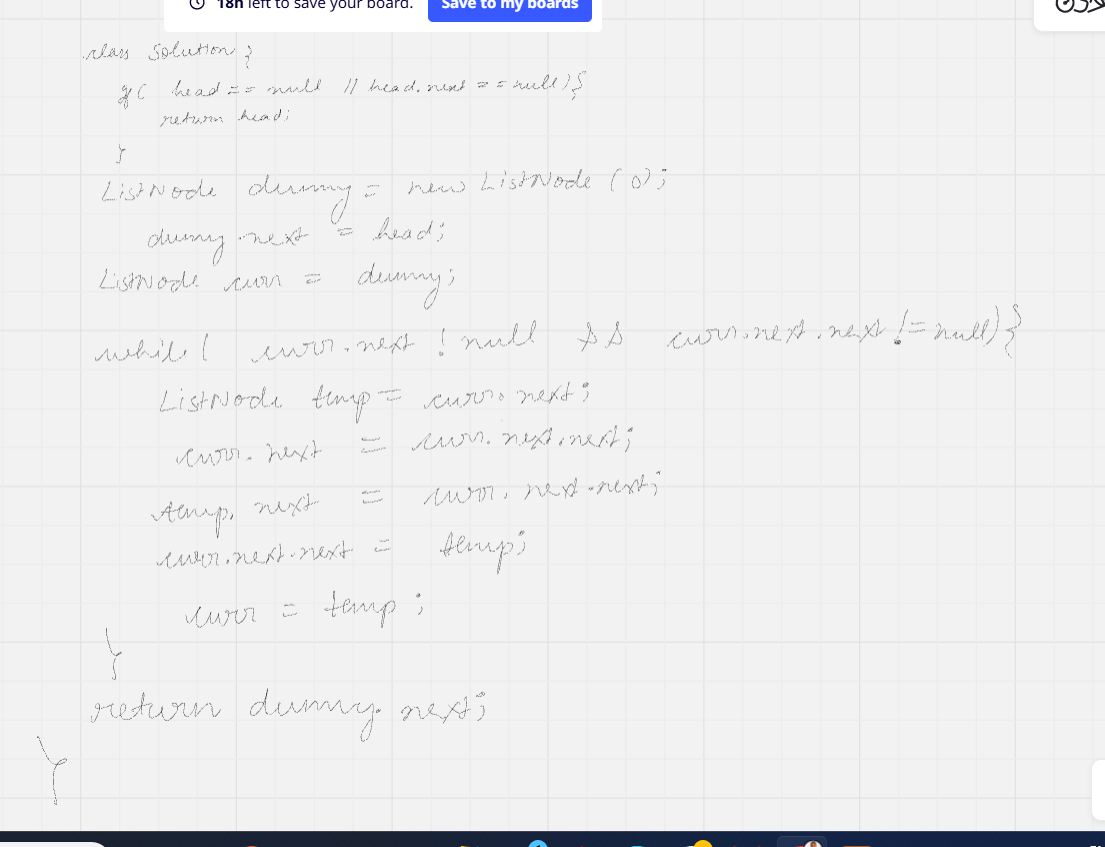 18h left to save your board. Save to my boards
class Solution {
if( head == null || head.next == null){
return head;
}
ListNode dummy = new ListNode (0);
dummy.next = head;
ListNode curr = dummy;
while( curr.next ! null && curr.next.next != null){
ListNode temp = curr.next;
curr.next = curr.next.next;
temp.next = curr.next.next;
curr.next.next = temp;
curr = temp;
}
return dummy.next;
}